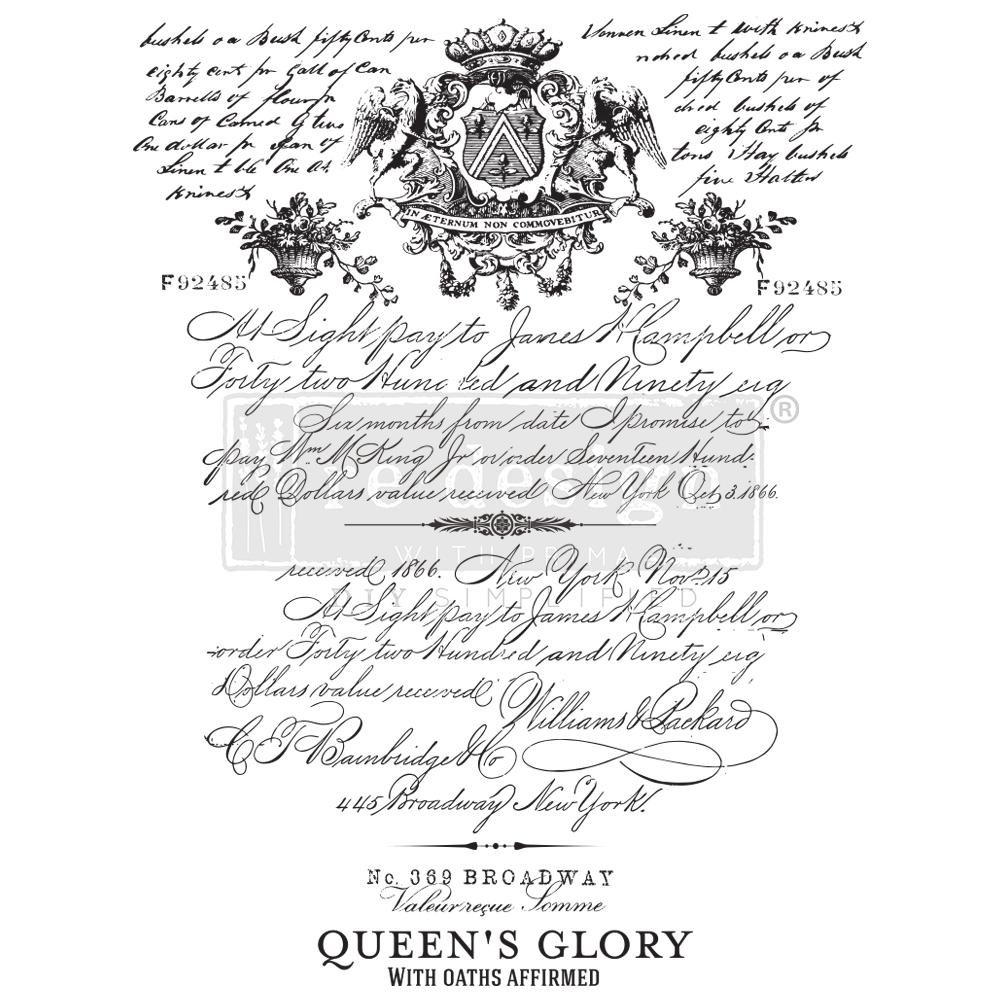 bushels oa Bush fifty Cents per
eighty cent pr Gall of Can
Barrells of flour pr
Cans of Carned G
One dollar pr ean of
Linen t ble One At
knines
Linen t with knines
bushels oa Bush
fifty Cents per of
dred bushels of
eighty Cents pr
tons Hay bushels
five Halters
IN ÆTERNUM NON COMMOVEBITUR
F92485
F92485
At Sight pay to James H Campbell or
Forty two Hundred and Ninety eig
Six months from date I promise to
pay Wm. M King Jr or order Seventeen Hund.
red Dollars value received New York Oct 3. 1866.
re·design
WITH PRIMA
DIY SIMPLIFIED
®
received 1866. New York Nov. 15
At Sight pay to James H Campbell or
order Forty two Hundred and Ninety eig
Dollars value received
Williams & Packard
C T Bainbridge & Co
445 Broadway New York.
No. 369 BROADWAY
Valeur reçue Somme
QUEEN'S GLORY
WITH OATHS AFFIRMED